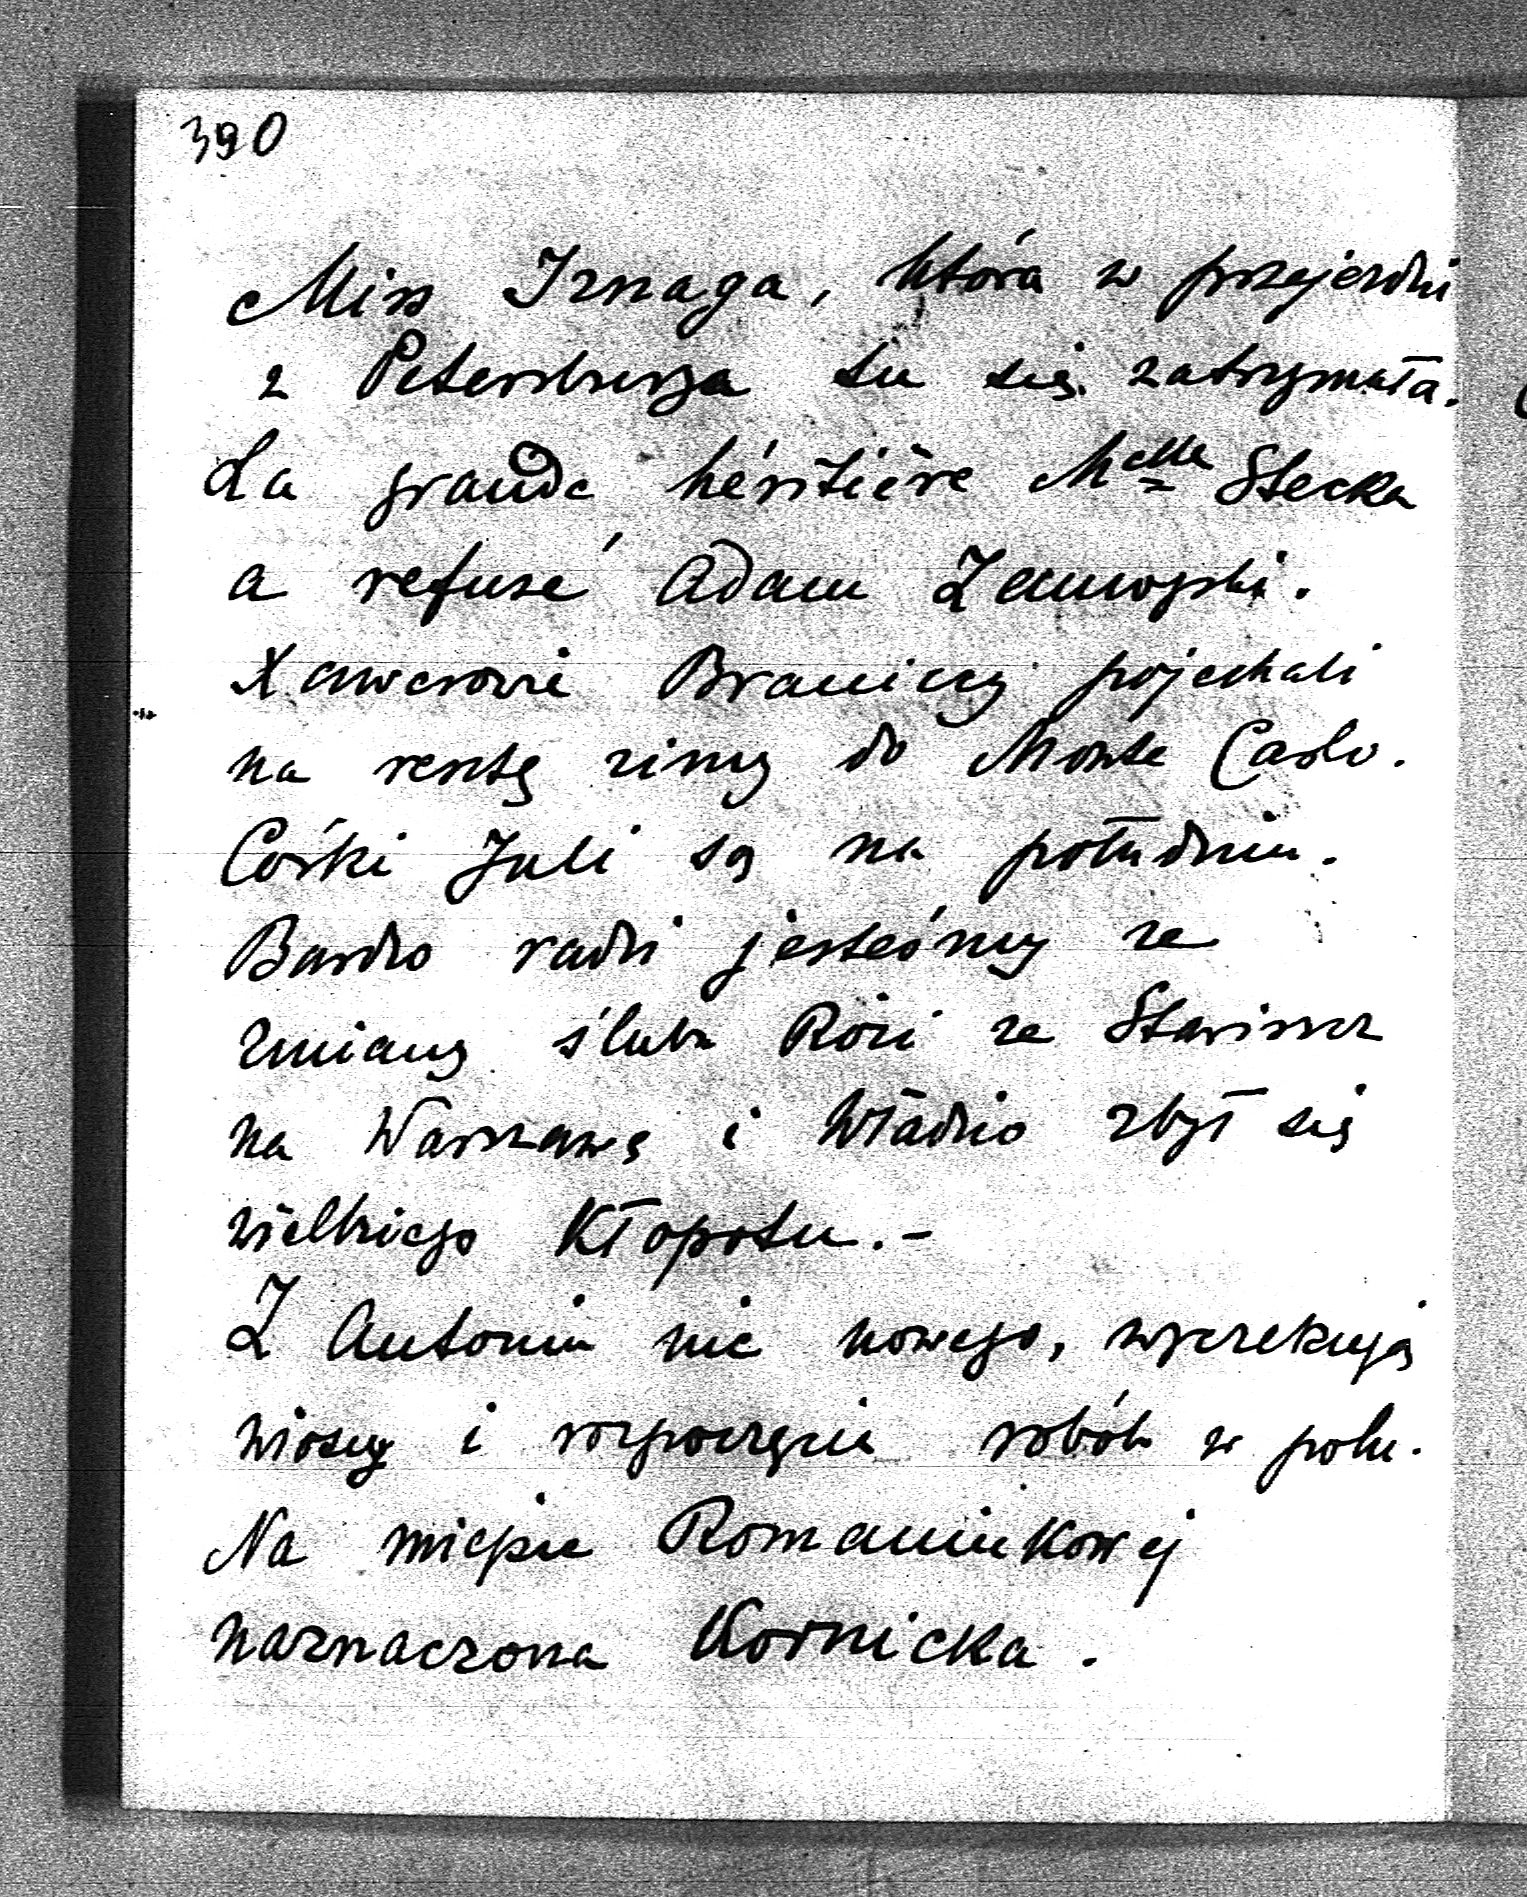 390
Miss Iznaga, która w przejeździ
z Petersburga tu się zatrzymała.
La grande héritière Melle Stecka
a refusé Adam Zamoyski.
Xawerowie Braniccy pojechali
na resztę zimy do Monte Carlo.
Córki Juli są na południu.
Bardzo radzi jesteśmy ze
zmiany ślubu Rózi ze Stawiszcz
na Warszawę i Władzio zbył się
wielkiego kłopotu.-
Z Antonin nic nowego, wyczekują
wiosny i rozpoczęcia robót w polu.
Na miejsce Romaniukowej
naznaczona Kornicka.